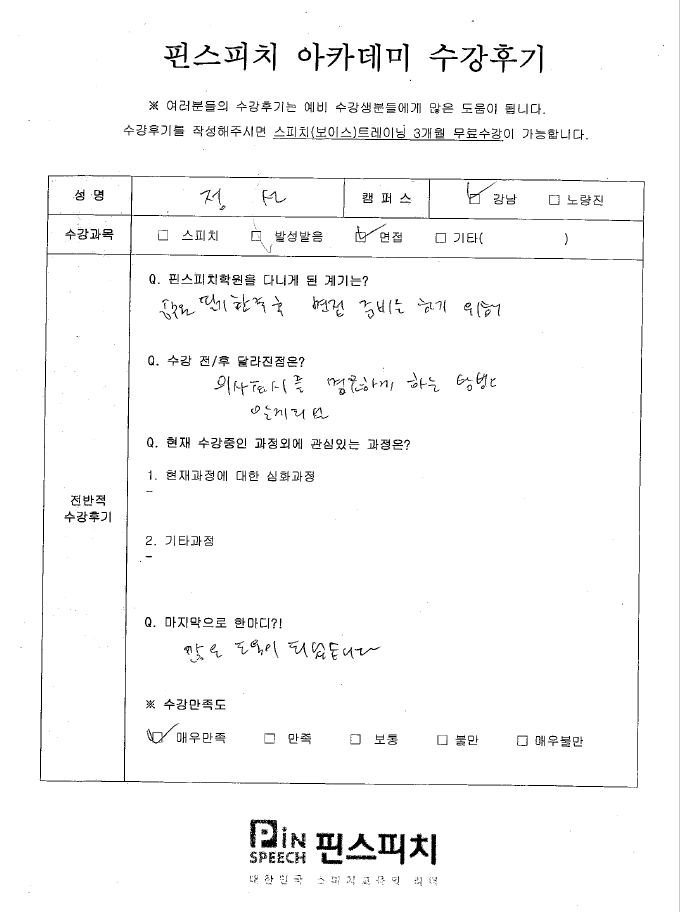 핀스피치 아카데미 수강후기
※ 여러분들의 수강후기는 예비 수강생분들에게 많은 도움이 됩니다.
수강후기를 작성해주시면 스피치(보이스)트레이닝 3개월 무료수강이 가능합니다.
성 명 정 캠 퍼 스 ☑ 강남 □ 노량진
수강과목 □ 스피치 ☑ 발성발음 ☑ 면접 □ 기타( )
Q. 핀스피치학원을 다니게 된 계기는?
필기합격 후 면접 준비를 하기 위해
Q. 수강 전/후 달라진점은?
의사표시를 명료하게 하는 방법을
알게되었
Q. 현재 수강중인 과정외에 관심있는 과정은?
1. 현재과정에 대한 심화과정
-
전반적
수강후기
2. 기타과정
-
Q. 마지막으로 한마디?!
많은 도움이 되었습니다
※ 수강만족도
☑ 매우만족 □ 만족 □ 보통 □ 불만 □ 매우불만
PiN
SPEECH 핀스피치
대한민국 스피치교육의